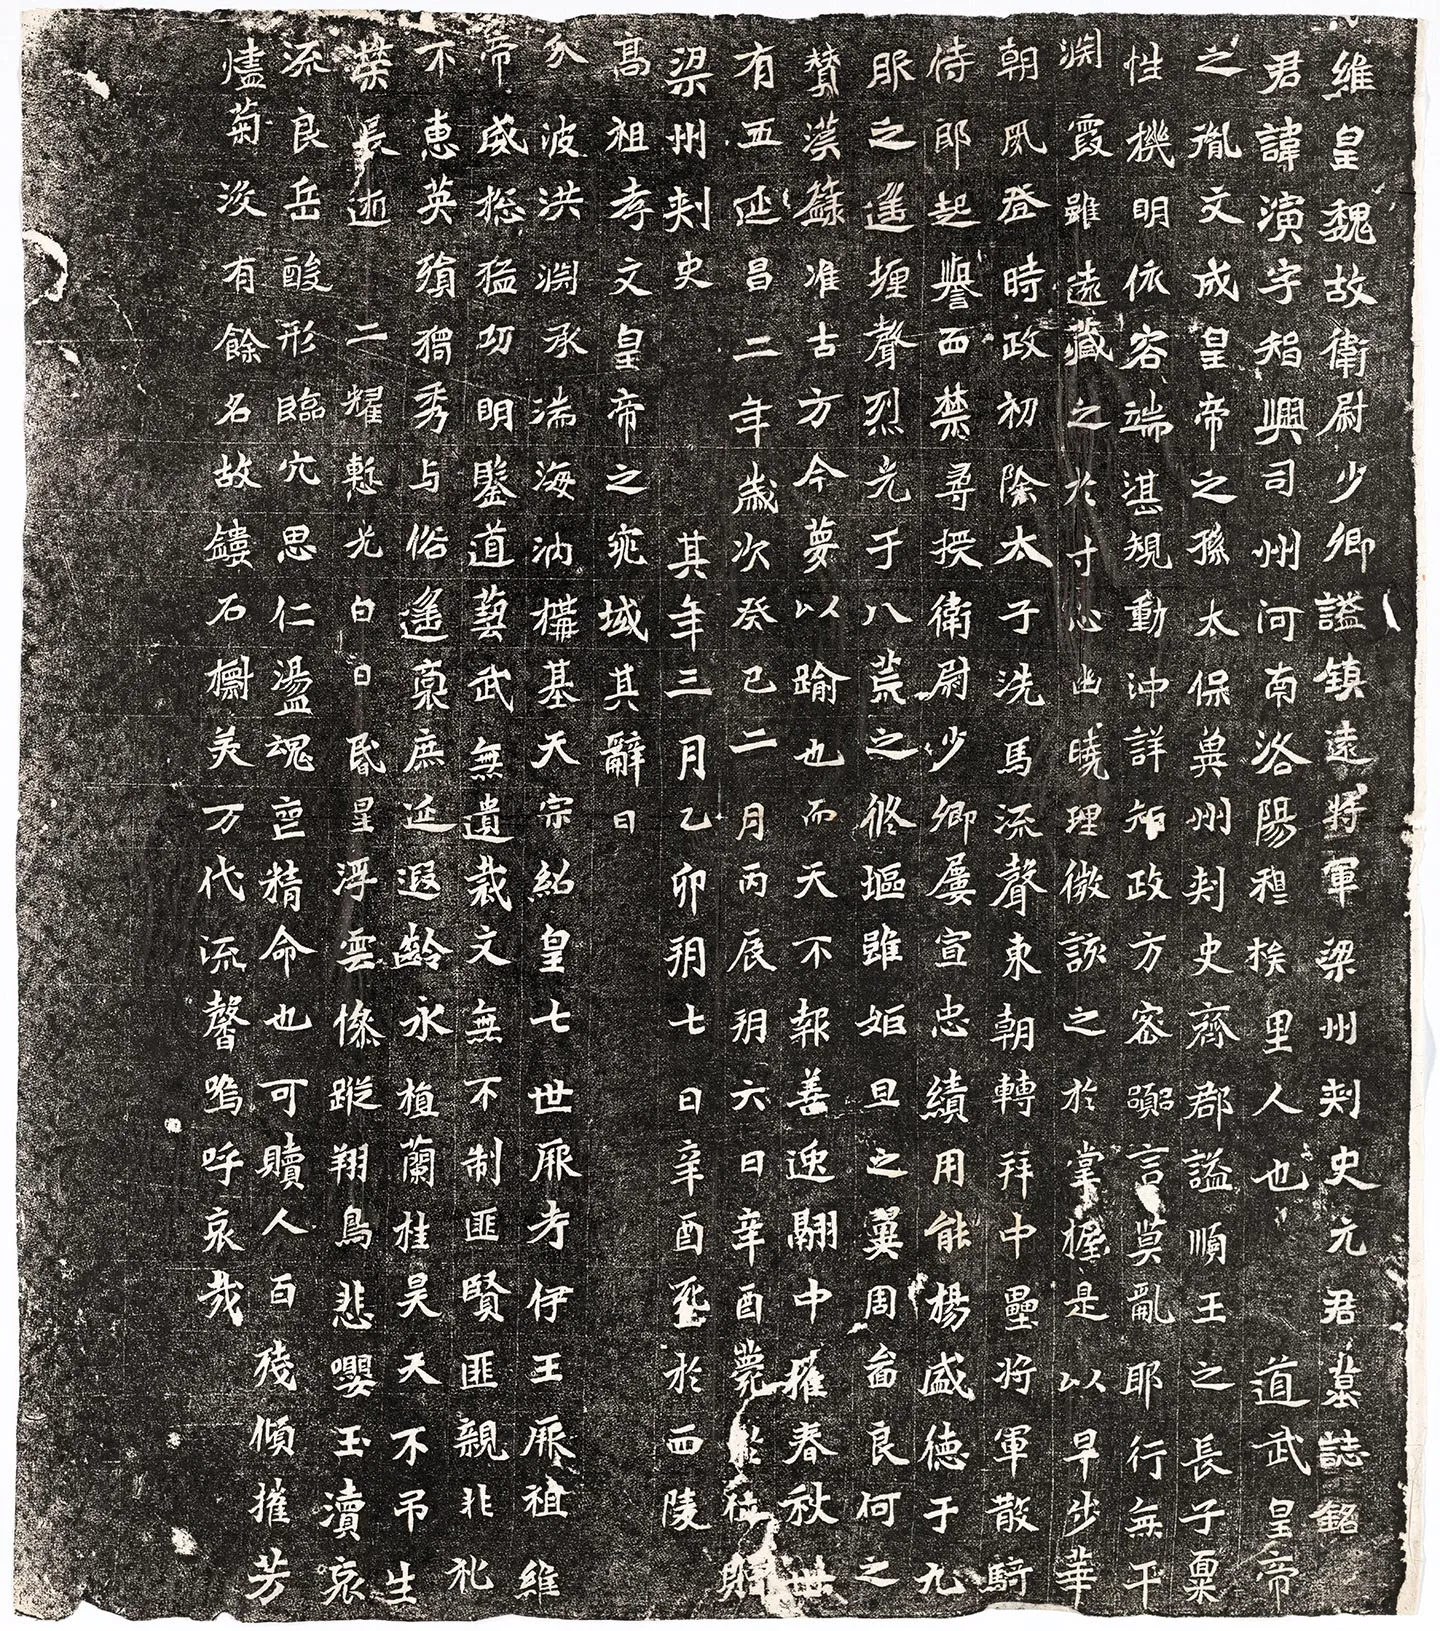 維皇魏故衛尉少卿謚鎮遠將軍梁州刾史元君墓誌銘
君諱演字智興司州河南洛陽穆族里人也 道武皇帝
之胤文成皇帝之孫太保兾州刾史齊郡謚順王之長子稟
性機明依容端湛規動沖詳知政方密言莫亂耶行無干
淵霞雖遠藏之於寸心幽曉理微該之於掌握是以早步華
朝夙登時政初除太子洗馬流聲東朝轉拜中壘將軍散騎
侍郎起譽西禁尋授衛尉少卿屢宣忠績用能楊盛德于九
服之遥㙻聲烈光于八荒之修區雖姬旦之翼周畓良何之
贊漢籙准古方今夢以踰也而天不報善迩翮中摧春秋世
有五延昌二年歲次癸巳二月丙辰朔六日辛酉薨於贈
梁州刾史 其年三月乙卯朔七日辛酉於西陵
高祖孝文皇帝之兆域其辭曰
分波洪淵承湍海汭構基天宗紹皇七世厥考伊王厥祖維
帝威惣猛㓛明鑒道藝武無遺裁文無不制匪賢匪親非礼
不惠英殞獨秀与俗遥裹庶延遐齡永植蘭桂昊天不弔生
榮長逝二耀慙光白日昬星浮雲慘蹤翔鳥悲嚶玉瀆哀
流良岳酸形臨穴思仁盪魂喪精命也可贖人百殘傾摧芳
燼菊浚有餘名故鏤石美万代流馨嗚呼哀哉